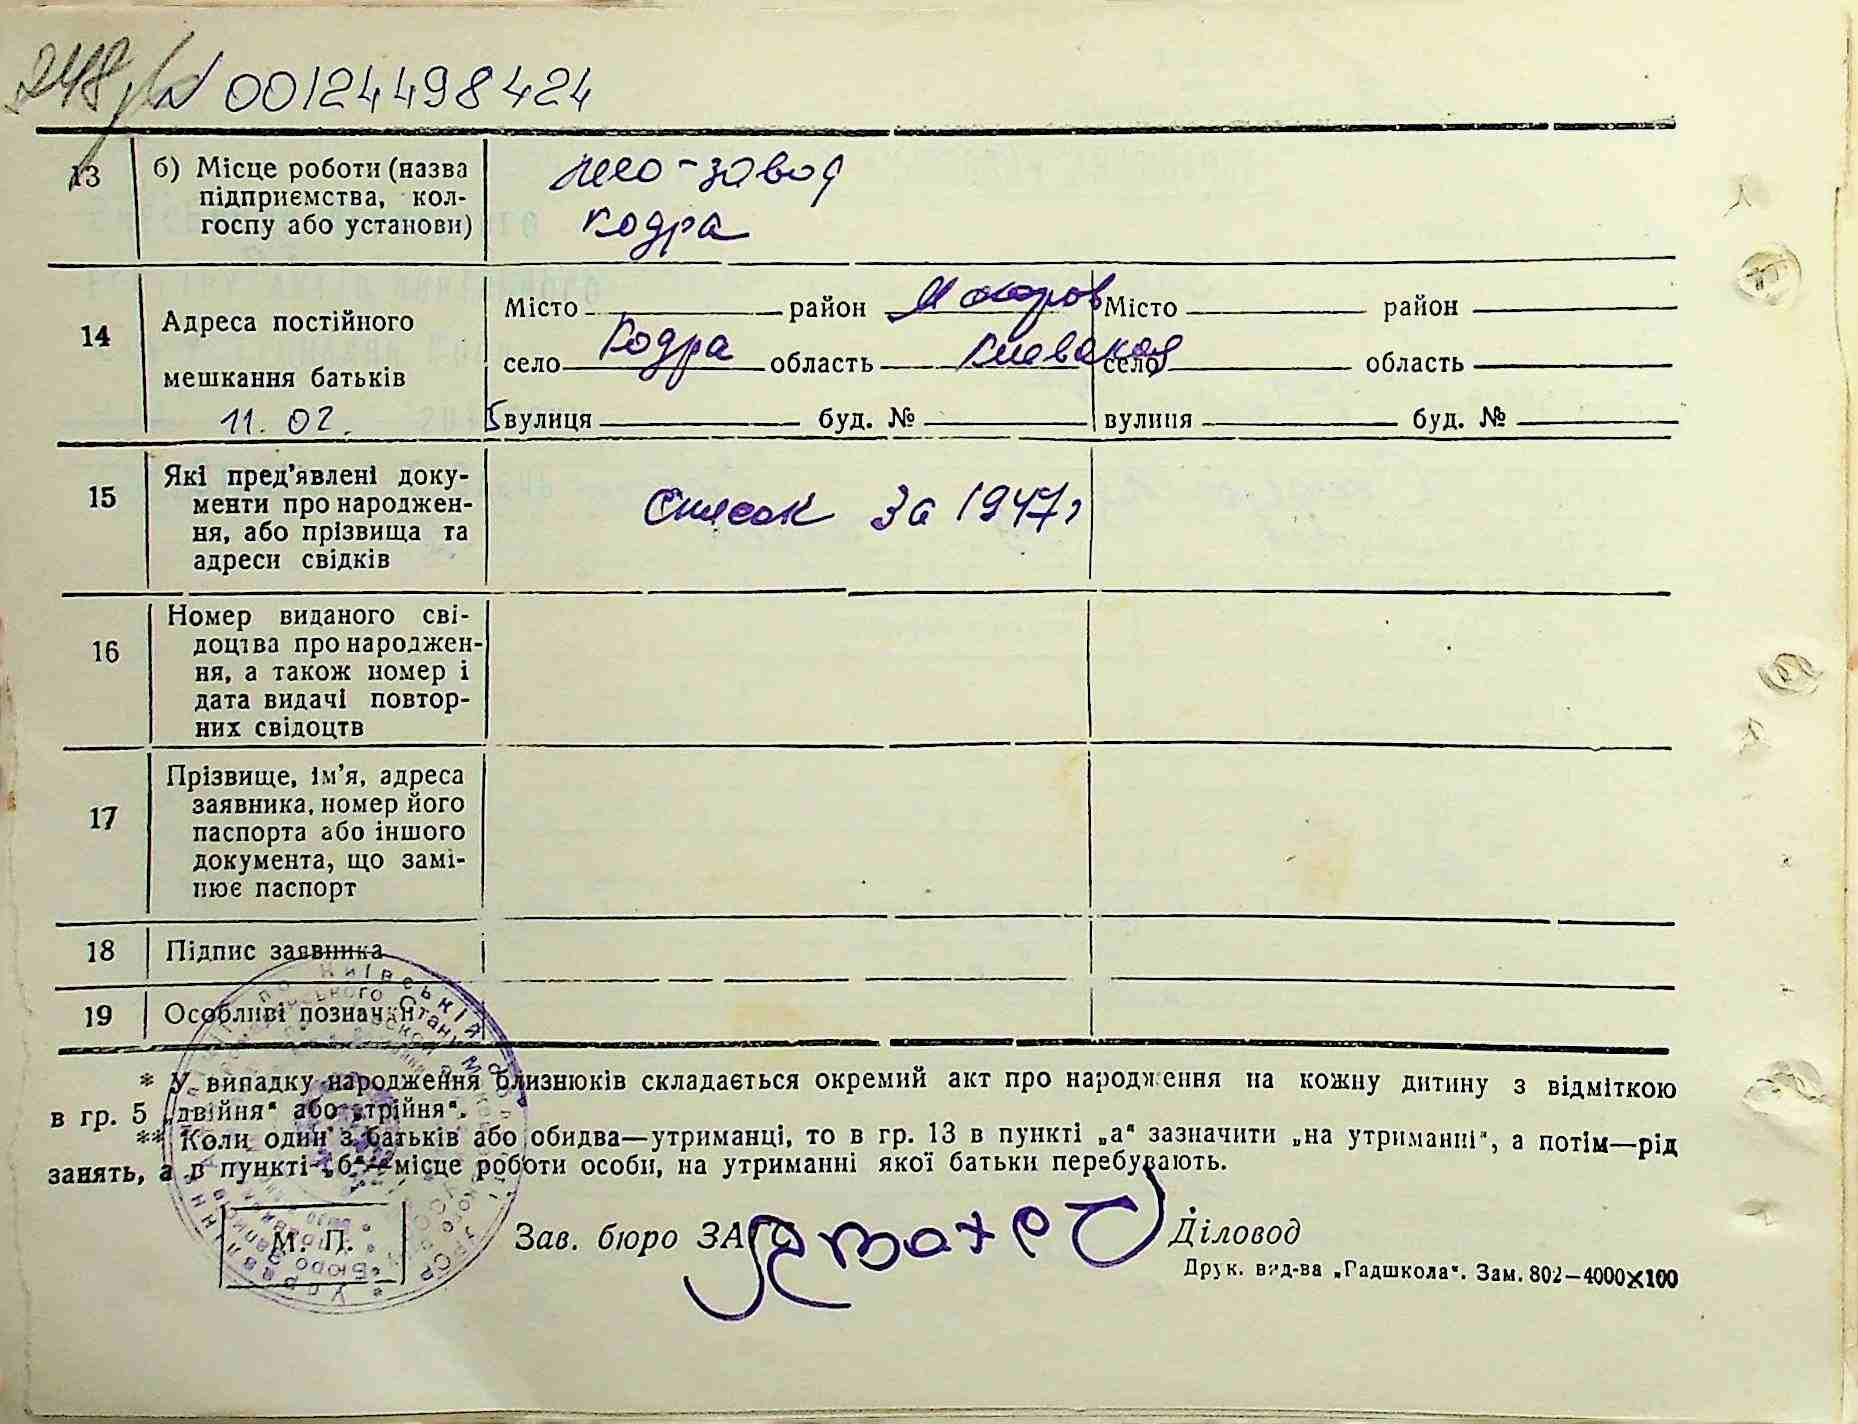 248 р/N 00124498424
13 б) Місце роботи (назва підприємства, кол-
госпу або установи)
завод
Кодра
14 Адреса постійного
мешкання батьків
11. 02.
Місто район Макаров
село Кодра область Киевская
вулиця буд. №
Місто район
село область
вулиця буд. №
15 Які пред'явлені доку-
менти про народжен-
ня, або прізвища та
адреси свідків
Список за 1947г
16 Номер виданого сві-
доцтва про народжен-
ня, а також номер і
дата видачі повтор-
них свідоцтв
17 Прізвище, ім'я, адреса
заявника, номер його
паспорта або іншого
документа, що замі-
нює паспорт
18 Підпис заявника
19 Особливі позначки
* У випадку народження близнюків складається окремий акт про народження на кожну дитину з відміткою
в гр. 5 „двійня" або „трійня".
** Коли один з батьків або обидва—утриманці, то в гр. 13 в пункті „а" зазначити „на утриманні", а потім—рід
занять, а в пункті „б"—місце роботи особи, на утриманні якої батьки перебувають.
М. П.
Зав. бюро ЗАГС
Діловод
Друк. вид-ва „Радшкола". Зам. 802—4000×100